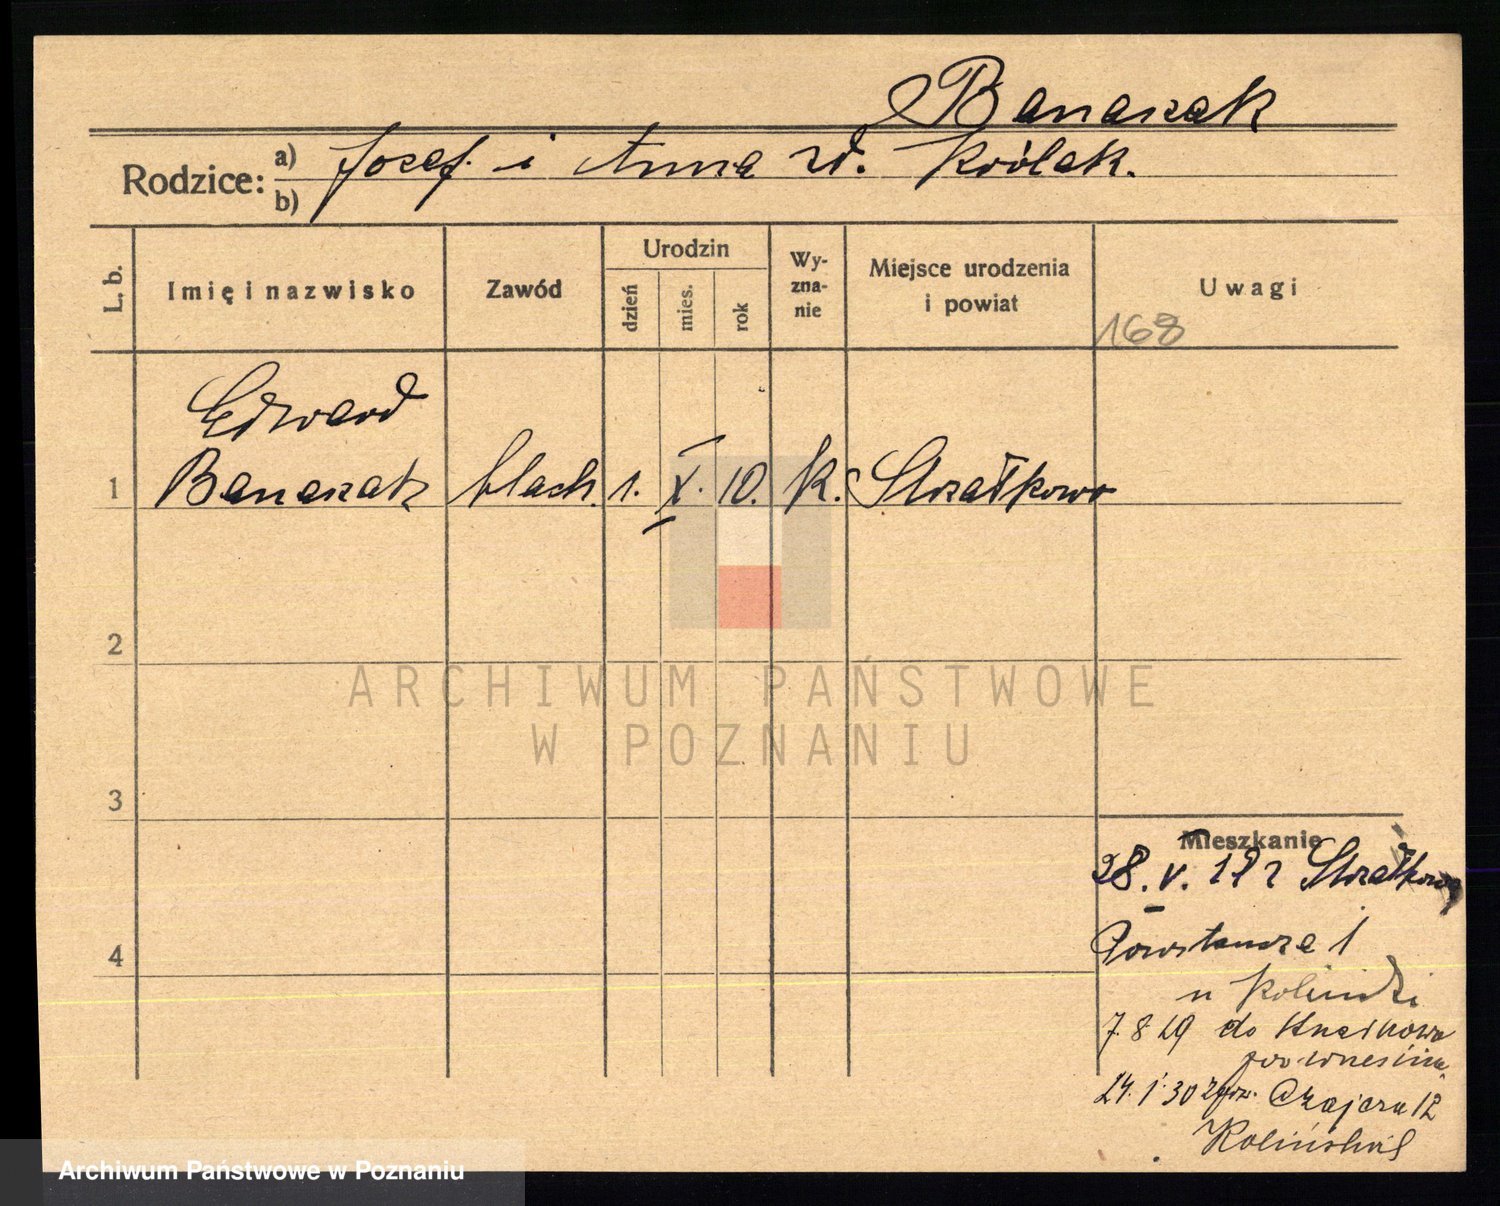 Banaszak
Rodzice: a) Józef i Anna zd. Królak.
b)
L. b.
Imię i nazwisko
Zawód
Urodzin
dzień
mies.
rok
Wy-
zna-
nie
Miejsce urodzenia
i powiat
Uwagi
168
Edward
1 Banaszak blach. 1. X. 10. k. Strzałkowo
2
3
4
Mieszkanie
28. V. Strzałkowo
Powstańcza 1
u Kolinski
7.8 29 do
24. 1 30 Czajcza 12
ARCHIWUM PAŃSTWOWE
W POZNANIU
Archiwum Państwowe w Poznaniu